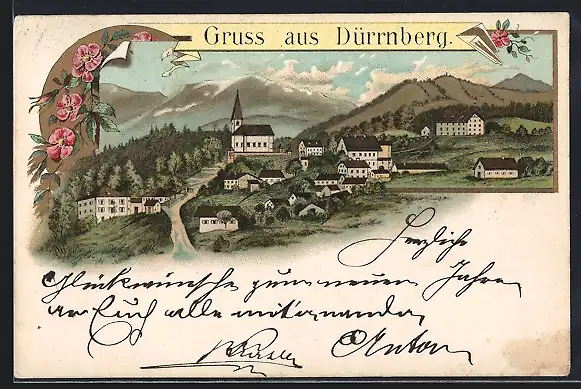 Gruss aus Dürrnberg.
Herzliche
Glückwünsche zum neuen Jahre
an Euch alle miteinander
Anton